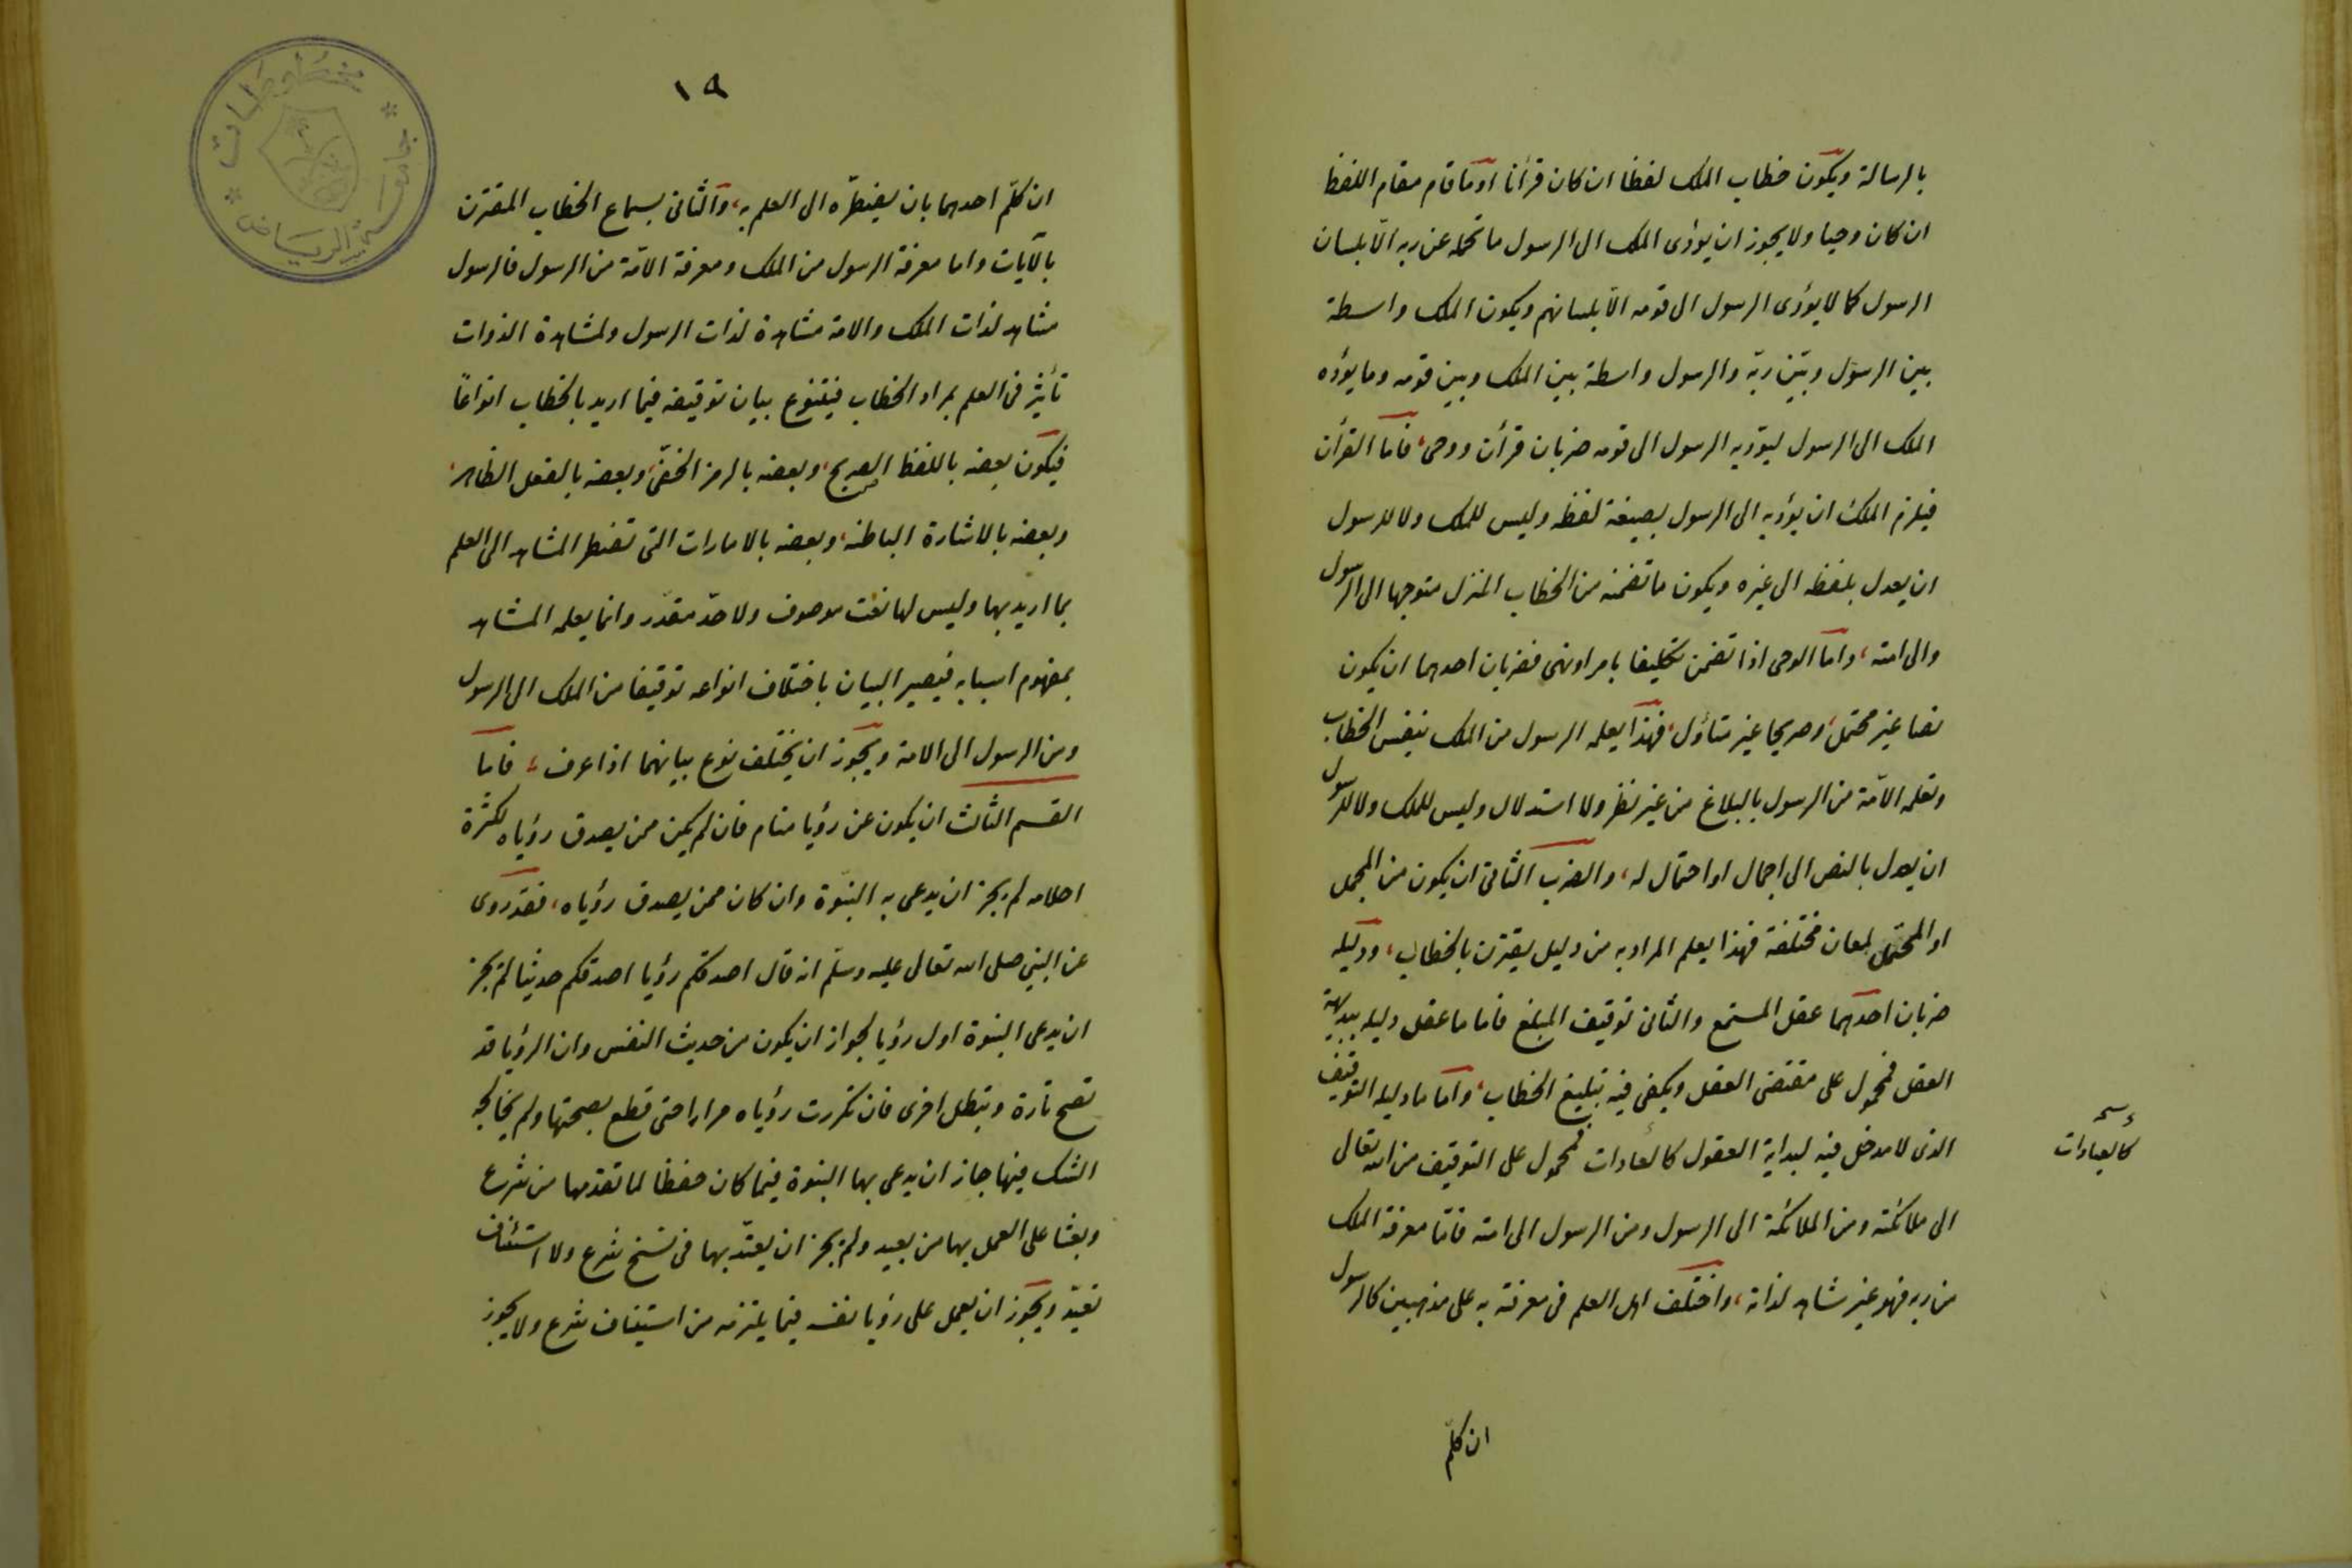 بالرسالة ويكون خطاب الملك لفظا ان كان قرأنا او ما قام مقام اللفظ
ان كان وحيا ولا يجوز ان يؤدى الملك الى الرسول ما تحمله عن ربه الّا بلسان
الرسول كما لا يؤدى الرسول الى قومه الّا بلسانهم ويكون الملك واسطة
بين الرسول وبين ربّه والرسول واسطة بين الملك وبين قومه وما يؤده
الملك الى الرسول ليؤديه الرسول الى قومه ضربان قرأن ووحى، فاما القرأن
فيلزم الملك ان يؤديه الى الرسول بصيغة لفظه وليس للملك ولا للرسول
ان يعدل بلفظه الى غيره ويكون ما تضمنه من الخطاب المنزل متوجها الى الرسول
والى امته، واما الوحى اذا تضمن تكليفا بامر او نهى فضربان احدهما ان يكون
نصا غير محتمل، وصريحا غير متأول، فهذا يعلمه الرسول من الملك بنفس الخطاب
وتعلمه الامّة من الرسول بالبلاغ من غير نظر ولا استدلال وليس للملك ولا للرسول
ان يعدل بالنص الى اجمال او احتمال له، والضرب الثانى ان يكون من المجمل
او المحتمل لمعان مختلفة فهذا يعلم المراد به من دليل يقترن بالخطاب، ودليله
ضربان احدهما عقل المستمع والثانى توقيف المبلغ فاما ما عقل دليله ببديهة
العقل فمحمول على مقتضى العقل ويكفى فيه تبليغ الخطاب، واما ما دليله التوقيف
الذى لا مدخل فيه لبداية العقول كالعادات فمحمول على التوقيف من الله تعالى
الى ملائكته ومن الملائكة الى الرسول ومن الرسول الى امته فامّا معرفة الملك
من ربه فهو غير مشاهد لذاته، واختلف اهل العلم فى معرفته به على مذهبين كالرسول
كالعبادات
ان كلّم
١٩
ان كلّم احدهما بان يضطرّه الى العلم به، والثانى بسماع الخطاب المقترن
بالآيات واما معرفة الرسول من الملك ومعرفة الامّة من الرسول فالرسول
مشاهد لذات الملك والامة مشاهدة لذات الرسول ولمشاهدة الذوات
تأثير فى العلم بمراد الخطاب فيتنوع بيان توقيفه فيما اريد بالخطاب انواعًا
فيكون بعضه باللفظ الصريح، وبعضه بالرمز الخفىّ، وبعضه بالفعل الظاهر،
وبعضه بالاشارة الباطنه، وبعضه بالامارات التى تضطر المشاهد الى العلم
بما اريد بها وليس لها نعت موصوف ولا حدّ مقدّر وانما يعلمه المشاهد
بمفهوم اسبابه فيصير البيان باختلاف انواعه توقيفا من الملك الى الرسول
ومن الرسول الى الامة ويجوز ان يختلف نوع بيانهما اذا عرف، فاما
القسم الثالث ان يكون عن رؤيا منام فان لم يكن ممن يصدق رؤياه لكثرة
احلامه لم يجز ان يدعى به النبّوة وان كان ممن يصدق رؤياه، فقد روى
عن النبى صلى الله تعالى عليه وسلّم انه قال اصدقكم رؤيا اصدقكم حديثا لم يجز
ان يدعى النبوة اول رؤيا لجواز ان يكون من حديث النفس وان الرؤيا قد
تصح تارة وتبطل اخرى فان تكررت رؤياه مرارا حتى قطع بصحتها ولم يخالجه
الشك فيها جاز ان يدعى بها النبوة فيما كان حفظا لما تقدمها من شرع
وبعثا على العمل بها من بعيد ولم يجز ان يعتدّ بها فى نسخ شرع ولا استئناف
تعبّد ويجوز ان يعمل على رؤيا نفسه فيما يلتزمه من استيناف شرع ولا يجوز
مخطوطات
جامعة الرياض